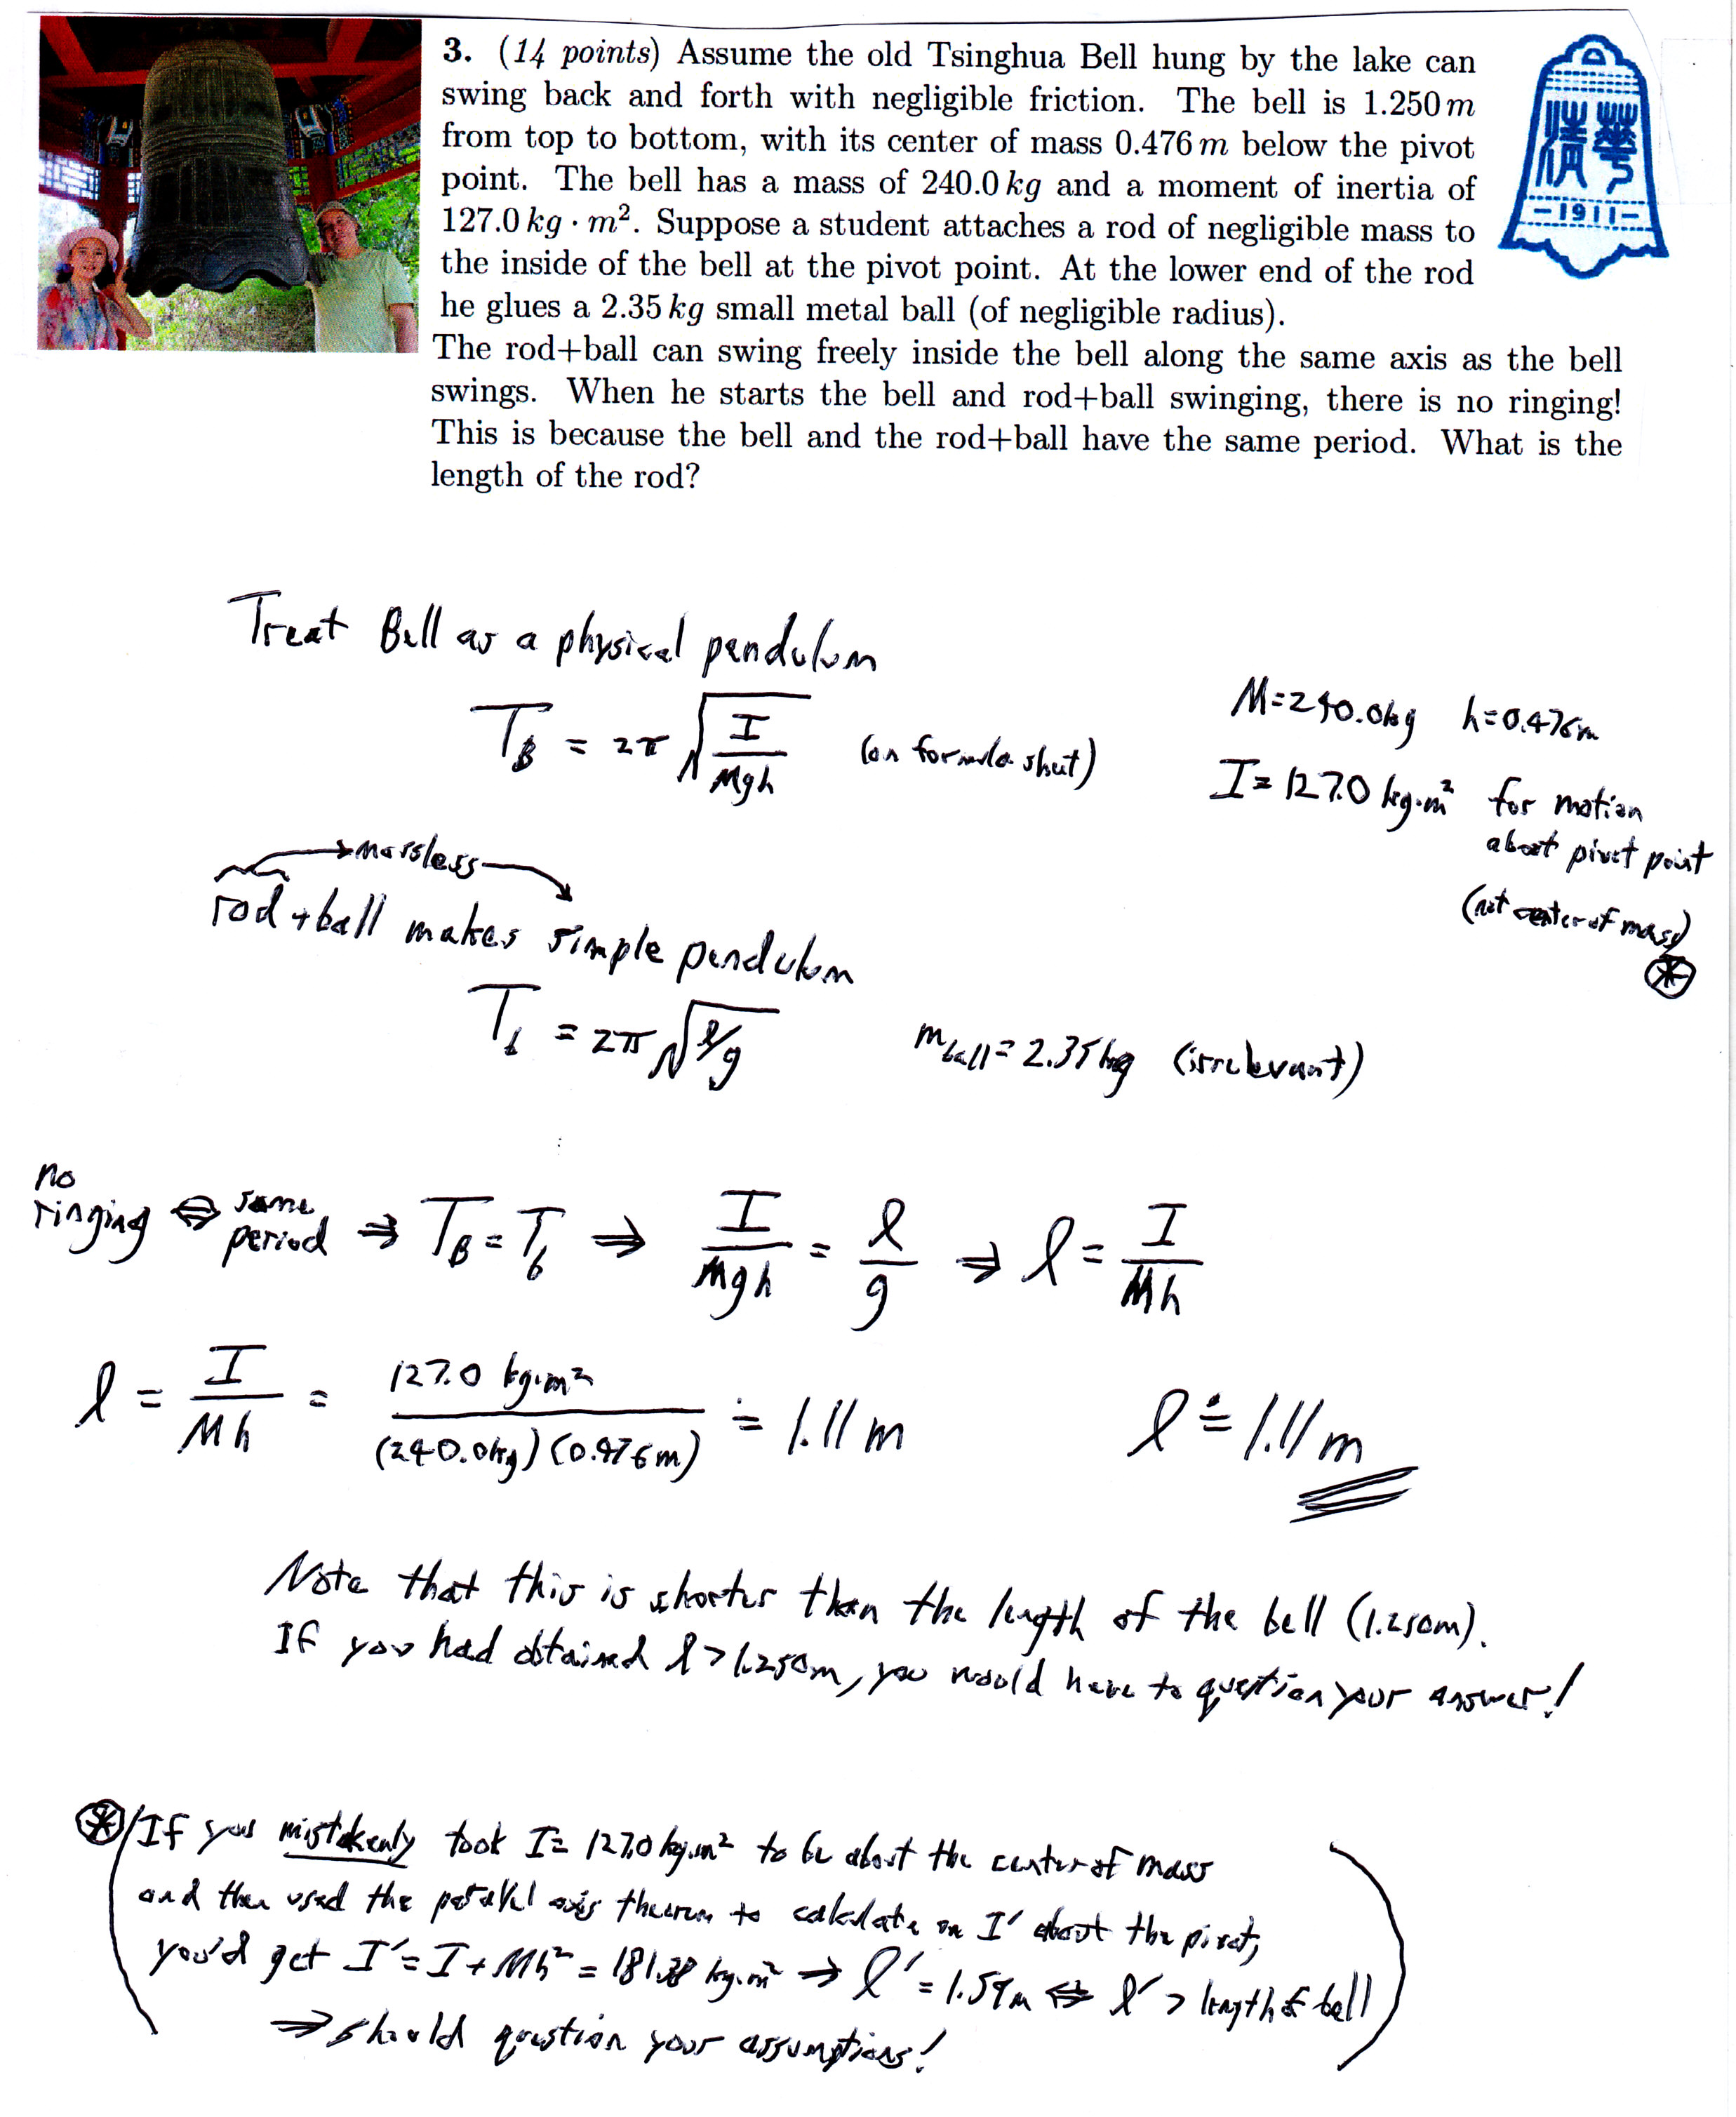 3. (14 points) Assume the old Tsinghua Bell hung by the lake can
swing back and forth with negligible friction. The bell is 1.250 m
from top to bottom, with its center of mass 0.476 m below the pivot
point. The bell has a mass of 240.0 kg and a moment of inertia of
127.0 kg · m². Suppose a student attaches a rod of negligible mass to
the inside of the bell at the pivot point. At the lower end of the rod
he glues a 2.35 kg small metal ball (of negligible radius).
The rod+ball can swing freely inside the bell along the same axis as the bell
swings. When he starts the bell and rod+ball swinging, there is no ringing!
This is because the bell and the rod+ball have the same period. What is the
length of the rod?
清華
-1911-
Treat Bell as a physical pendulum
T_B = 2π √(I/Mgh) (on formula sheet)
M=240.0kg h=0.476m
I=127.0 kg·m² for motion
about pivot point
(not center of mass)
⊛
massless
rod+ball makes simple pendulum
T_b = 2π √(l/g) m_ball = 2.35kg (irrelevant)
no
ringing ⇔ same
period ⇒ T_B = T_b ⇒ I/Mgh = l/g ⇒ l = I/Mh
l = I/Mh = 127.0 kg·m²/(240.0kg)(0.476m) ≐ 1.11 m l ≐ 1.11 m
Note that this is shorter than the length of the bell (1.250m).
If you had obtained l > 1.250m, you would have to question your answer!
⊛ (If you mistakenly took I= 127.0 kg·m² to be about the center of mass
and then used the parallel axis theorem to calculate an I' about the pivot,
you'd get I' = I + Mh² = 181.38 kg·m² ⇒ l' = 1.59m ⇔ l' > length of bell
⇒ should question your assumptions!)